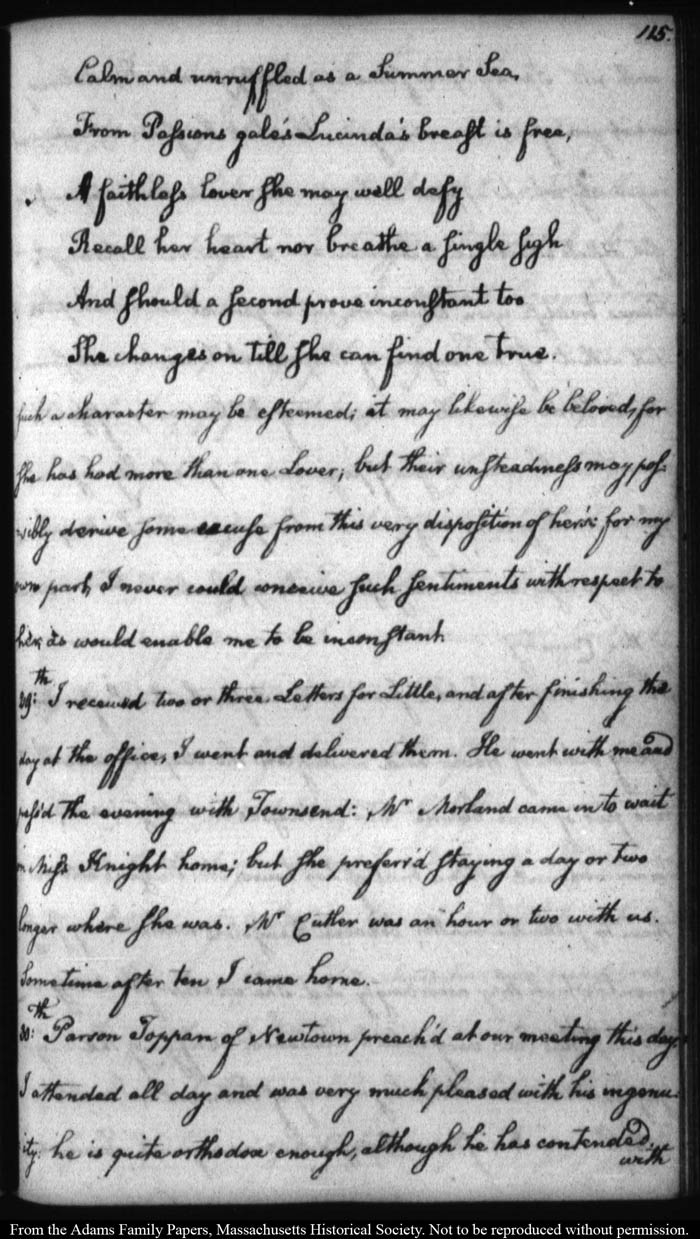 115.
Calm and unruffled as a Summer Sea,
From Passions gale's Lucinda's breast is free,
A faithless lover she may well defy
Recall her heart nor breathe a single sigh
And should a second prove inconstant too
She changes on till she can find one true.
such a character may be esteemed; it may likewise be beloved, for
she has had more than one Lover; but their unsteadiness may pos-
sibly derive some excuse from this very disposition of hers: for my
own part, I never could conceive such sentiments with respect to
her, as would enable me to be inconstant.
29:th I received two or three Letters for Little, and after finishing the
day at the office, I went and delivered them. He went with me and
pass'd the evening with Townsend: Mr Morland came in to wait
on Miss Knight home; but she preferr'd staying a day or two
longer where she was. Mr Cutler was an hour or two with us.
Sometime after ten I came home.
30:th Parson Toppan of Newtown preach'd at our meeting this day.
I attended all day and was very much pleased with his ingenu-
ity: he is quite orthodox enough, although he has contended
with
From the Adams Family Papers, Massachusetts Historical Society. Not to be reproduced without permission.